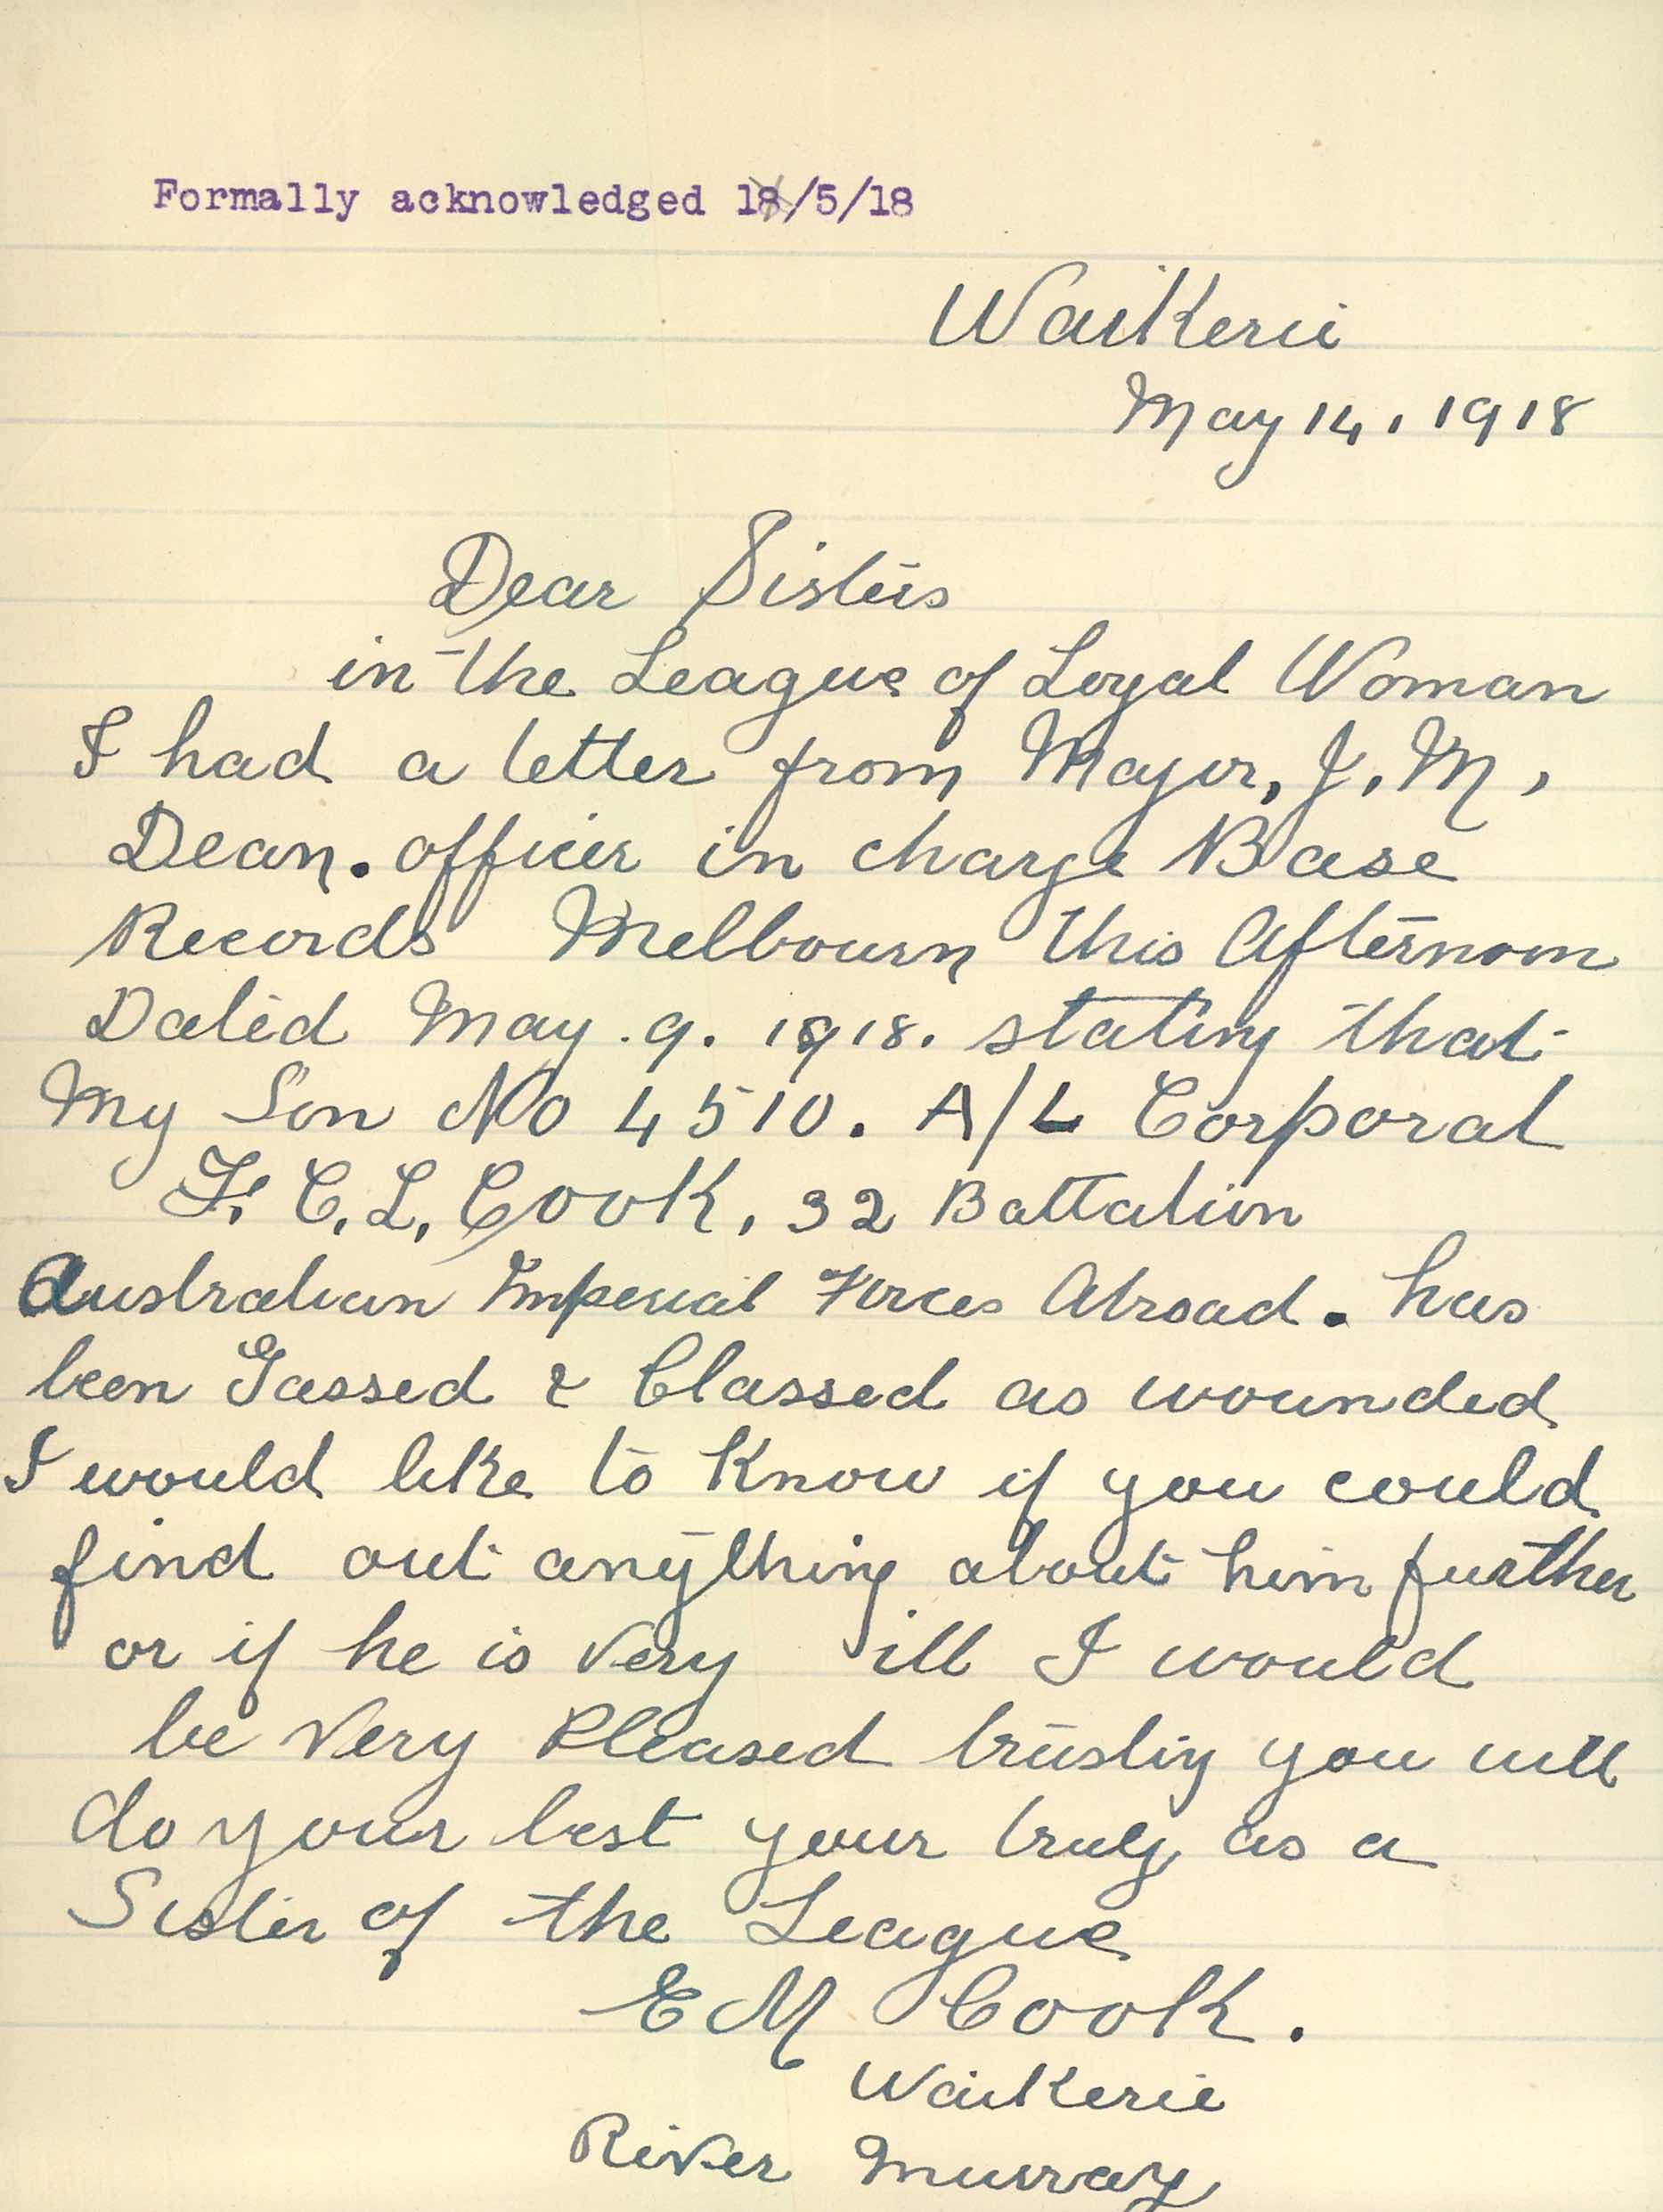 Formally acknowledged 18/5/18
Waikerie
May 14, 1918
Dear Sisters
in the League of Loyal Woman
I had a letter from Major, J. M,
Dean. officer in charge Base
Records Melbourn this Afternoon
Dated May. 9. 1918. stating that
My Son No 4510. A/L Corporal
F. C. L. Cook, 32 Battalion
Australian Imperial Forces Abroad. has
been Gassed & Classed as wounded
I would like to Know if you could
find out anything about him further
or if he is Very ill I would
be Very Pleased trusting you will
do your best your truly as a
Sister of the League
E M Cook.
Waikerie
River Murray